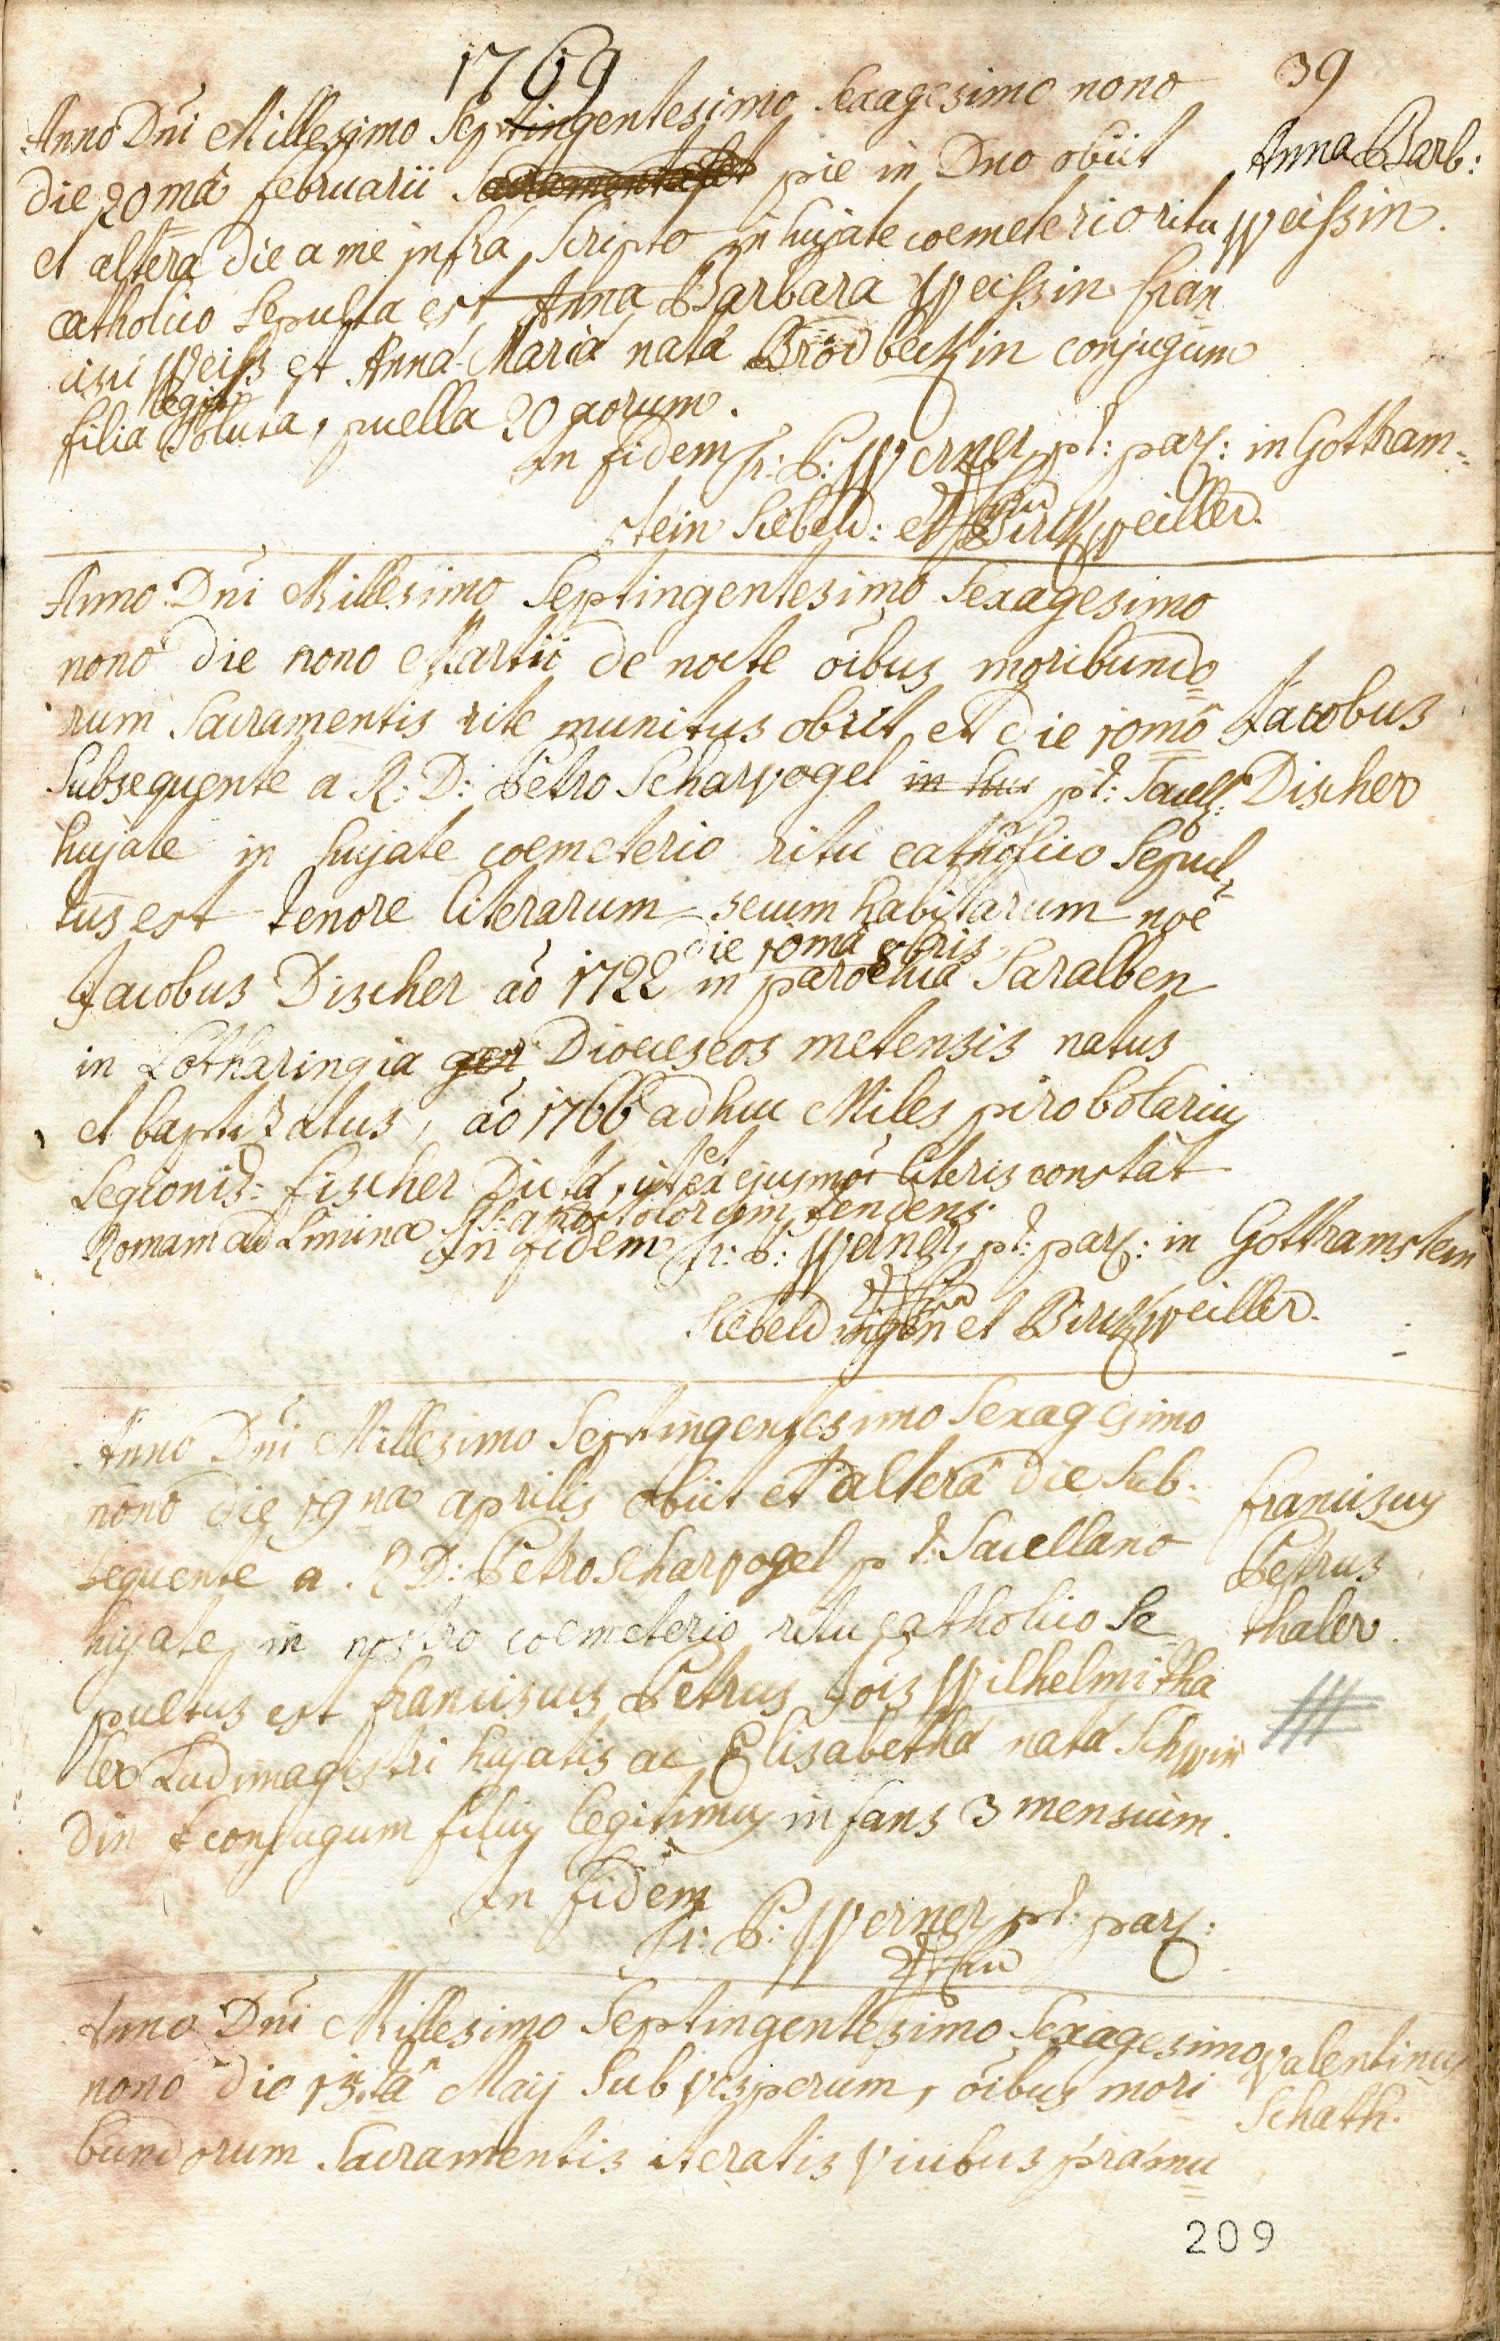 1769
39
Anno Dni Millesimo Septingentesimo Sexagesimo nono
die 20ma februarii pie in Dno obiit
Anna Barb:
et altera die a me infra Scripto in hujate coemeterio ritu
Weissin.
catholico Sepulta est Anna Barbara Weissin fran
cisci Weiss et Anna Maria nata Brodbeckin conjugum
legit:
filia soluta, puella 20 aorum.
In fidem fr: P: Werner pt: par: in Gottram-
stein Siebeld: et Birckweiller.
Anno Dni Millesimo Septingentesimo Sexagesimo
nono die nono Martii de nocte oibus moribundo
rum Sacramentis rite munitus obiit, et die 10ma
Jacobus
Subsequente a R: D: Petro Scharvogel in huj pt: Sacell:
Discher
hujate in hujate coemeterio ritu catholico Sepul
tus est tenore literarum secum habitarum noe
die 10ma 8bris
Jacobus Discher ao 1722 in parochia Saralben
in Lotharingia ger Dioeceseos metensis natus
et baptizatus, ao 1766 adhuc Miles pirobolarius
Legionis: fischer Dicta, ut et ex ejusmoi literis constat
Romam ad Limina SS: apostolorum tendens.
In fidem fr: P: Werner pt: par: in Gottramstein
Siebeldingen et Birckweiller.
Anno Dni Millesimo Septingentesimo Sexagesimo
nono die 19na aprilis obiit et altera die Sub-
franciscus
sequente a R D: Petro Scharvogel pt: Sacellano
Petrus
hujate in nostro coemeterio ritu catholico Se
thaler.
pultus est franciscus Petrus Jois Wilhelmi tha
ler Ludimagistri hujatis ac Elisabetha nata Schwin
din conjugum filius legitimus infans 3 mensium.
In fidem
fr: P: Werner pt: par:
Anno Dni Millesimo Septingentesimo Sexagesimo
Valentinus
nono die Maij Sub vesperum, oibus mori
Schath.
bundorum Sacramentis iteratis vicibus praemu
209